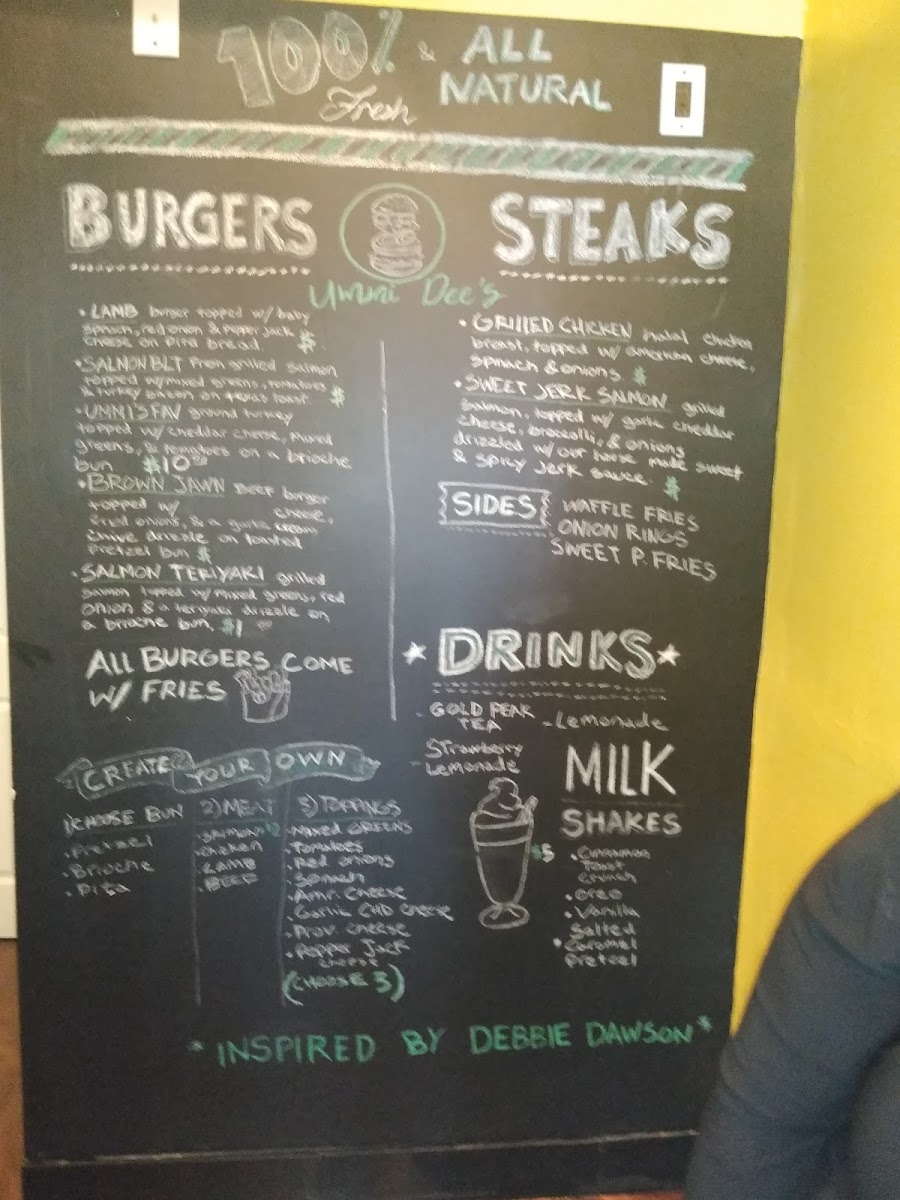 100% & ALL
Fresh NATURAL
BURGERS
Ummi Dee's
• LAMB burger topped w/ baby
spinach, red onion & Pepper jack
cheese on Pita bread. $
• SALMON BLT Fresh grilled salmon
topped w/mixed greens, tomatoes
& turkey bacon on texas toast $
• UMMISFAV ground turkey
topped w/ cheddar cheese, mixed
greens, & tomatoes on a brioche
bun $10
• BROWN JAWN BEEF burger
topped w/ cheese,
fried onions, & a garlic cream
chive drizzle on toasted
pretzel bun $
• SALMON TERIYAKI grilled
salmon topped w/ mixed greens, red
onion & a teriyaki drizzle on
a brioche bun. $1
ALL BURGERS COME
W/ FRIES
STEAKS
• GRILLED CHICKEN halal chicken
breast, topped w/ american cheese,
spinach & onions $
• SWEET JERK SALMON grilled
salmon, topped w/ garlic cheddar
cheese, broccolli, & onions
drizzled w/ our house made sweet
& spicy jerk sauce. $
SIDES
WAFFLE FRIES
ONION RINGS
SWEET P. FRIES
* DRINKS *
- GOLD PEAK
TEA
- Lemonade
- Strawberry
Lemonade
MILK
SHAKES
$5
• Cinnamon
Toast
Crunch
• Oreo
• Vanilla
• Salted
Caramel
Pretzel
CREATE YOUR OWN
1) CHOOSE BUN
• Pretzel
• Brioche
• Pita
2) MEAT
• SALMON $2
• Chicken
• LAMB
• BEEF
3) TOPPINGS
• Mixed GREENS
• Tomatoes
• Red onions
• Spinach
• Amr. Cheese
• Garlic CHD Cheese
• Prov. Cheese
• Pepper Jack
Cheese
(CHOOSE 3)
* INSPIRED BY DEBBIE DAWSON *